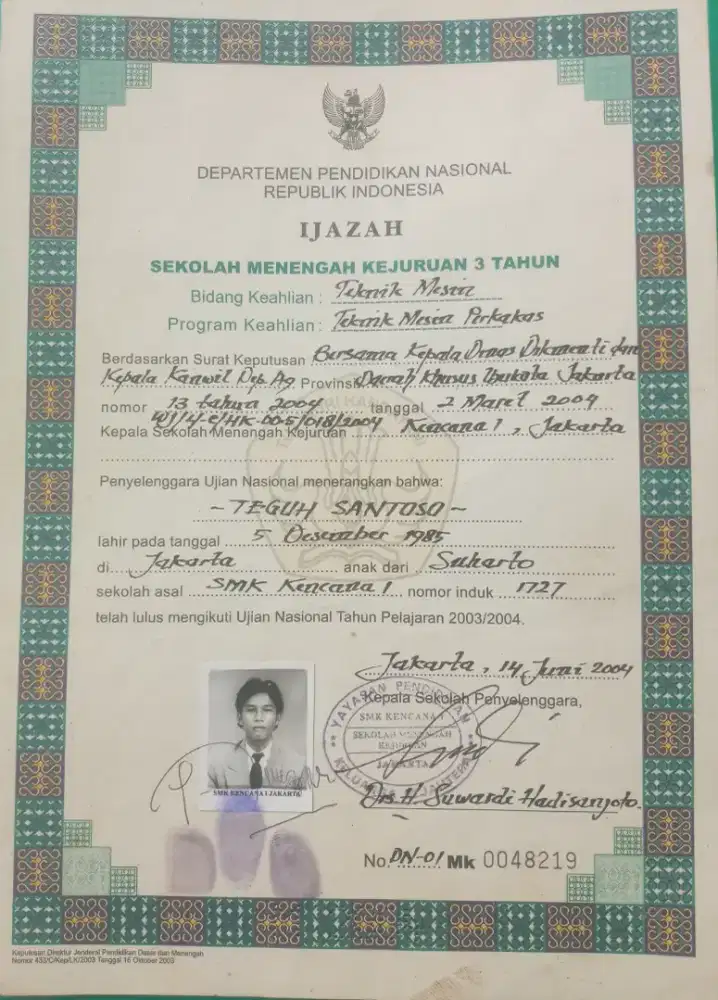 DEPARTEMEN PENDIDIKAN NASIONAL
REPUBLIK INDONESIA
IJAZAH
SEKOLAH MENENGAH KEJURUAN 3 TAHUN
Bidang Keahlian : Teknik Mesin
Program Keahlian : Teknik Mesin Perkakas
Berdasarkan Surat Keputusan Bersama Kepala Dinas Dikmenti dan
Kepala Kanwil Dep. Ag Provinsi Daerah Khusus Ibukota Jakarta
nomor 13 tahun 2004 tanggal 2 Maret 2004
WJ/4-e/HK-00-5/018/2004
Kepala Sekolah Menengah Kejuruan Kencana 1, Jakarta
Penyelenggara Ujian Nasional menerangkan bahwa:
~ TEGUH SANTOSO ~
lahir pada tanggal 5 Desember 1985
di Jakarta anak dari Suharto
sekolah asal SMK Kencana 1 nomor induk 1727
telah lulus mengikuti Ujian Nasional Tahun Pelajaran 2003/2004.
Jakarta, 14 Juni 2004
Kepala Sekolah Penyelenggara,
YAYASAN PENDIDIKAN
SMK KENCANA 1
SEKOLAH MENENGAH
KEJURUAN
JAKARTA
SMK KENCANA I JAKARTA
Drs H. Suwardi Hadisanjoto.
No. DN-01 Mk 0048219
Keputusan Direktur Jenderal Pendidikan Dasar dan Menengah
Nomor 433/C/Kep/LK/2003 Tanggal 16 Oktober 2003